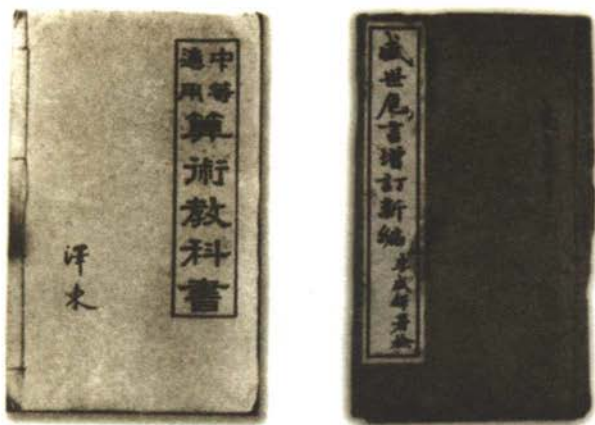 中等
通用
算術教科書
澤東
盛世危言增訂新編